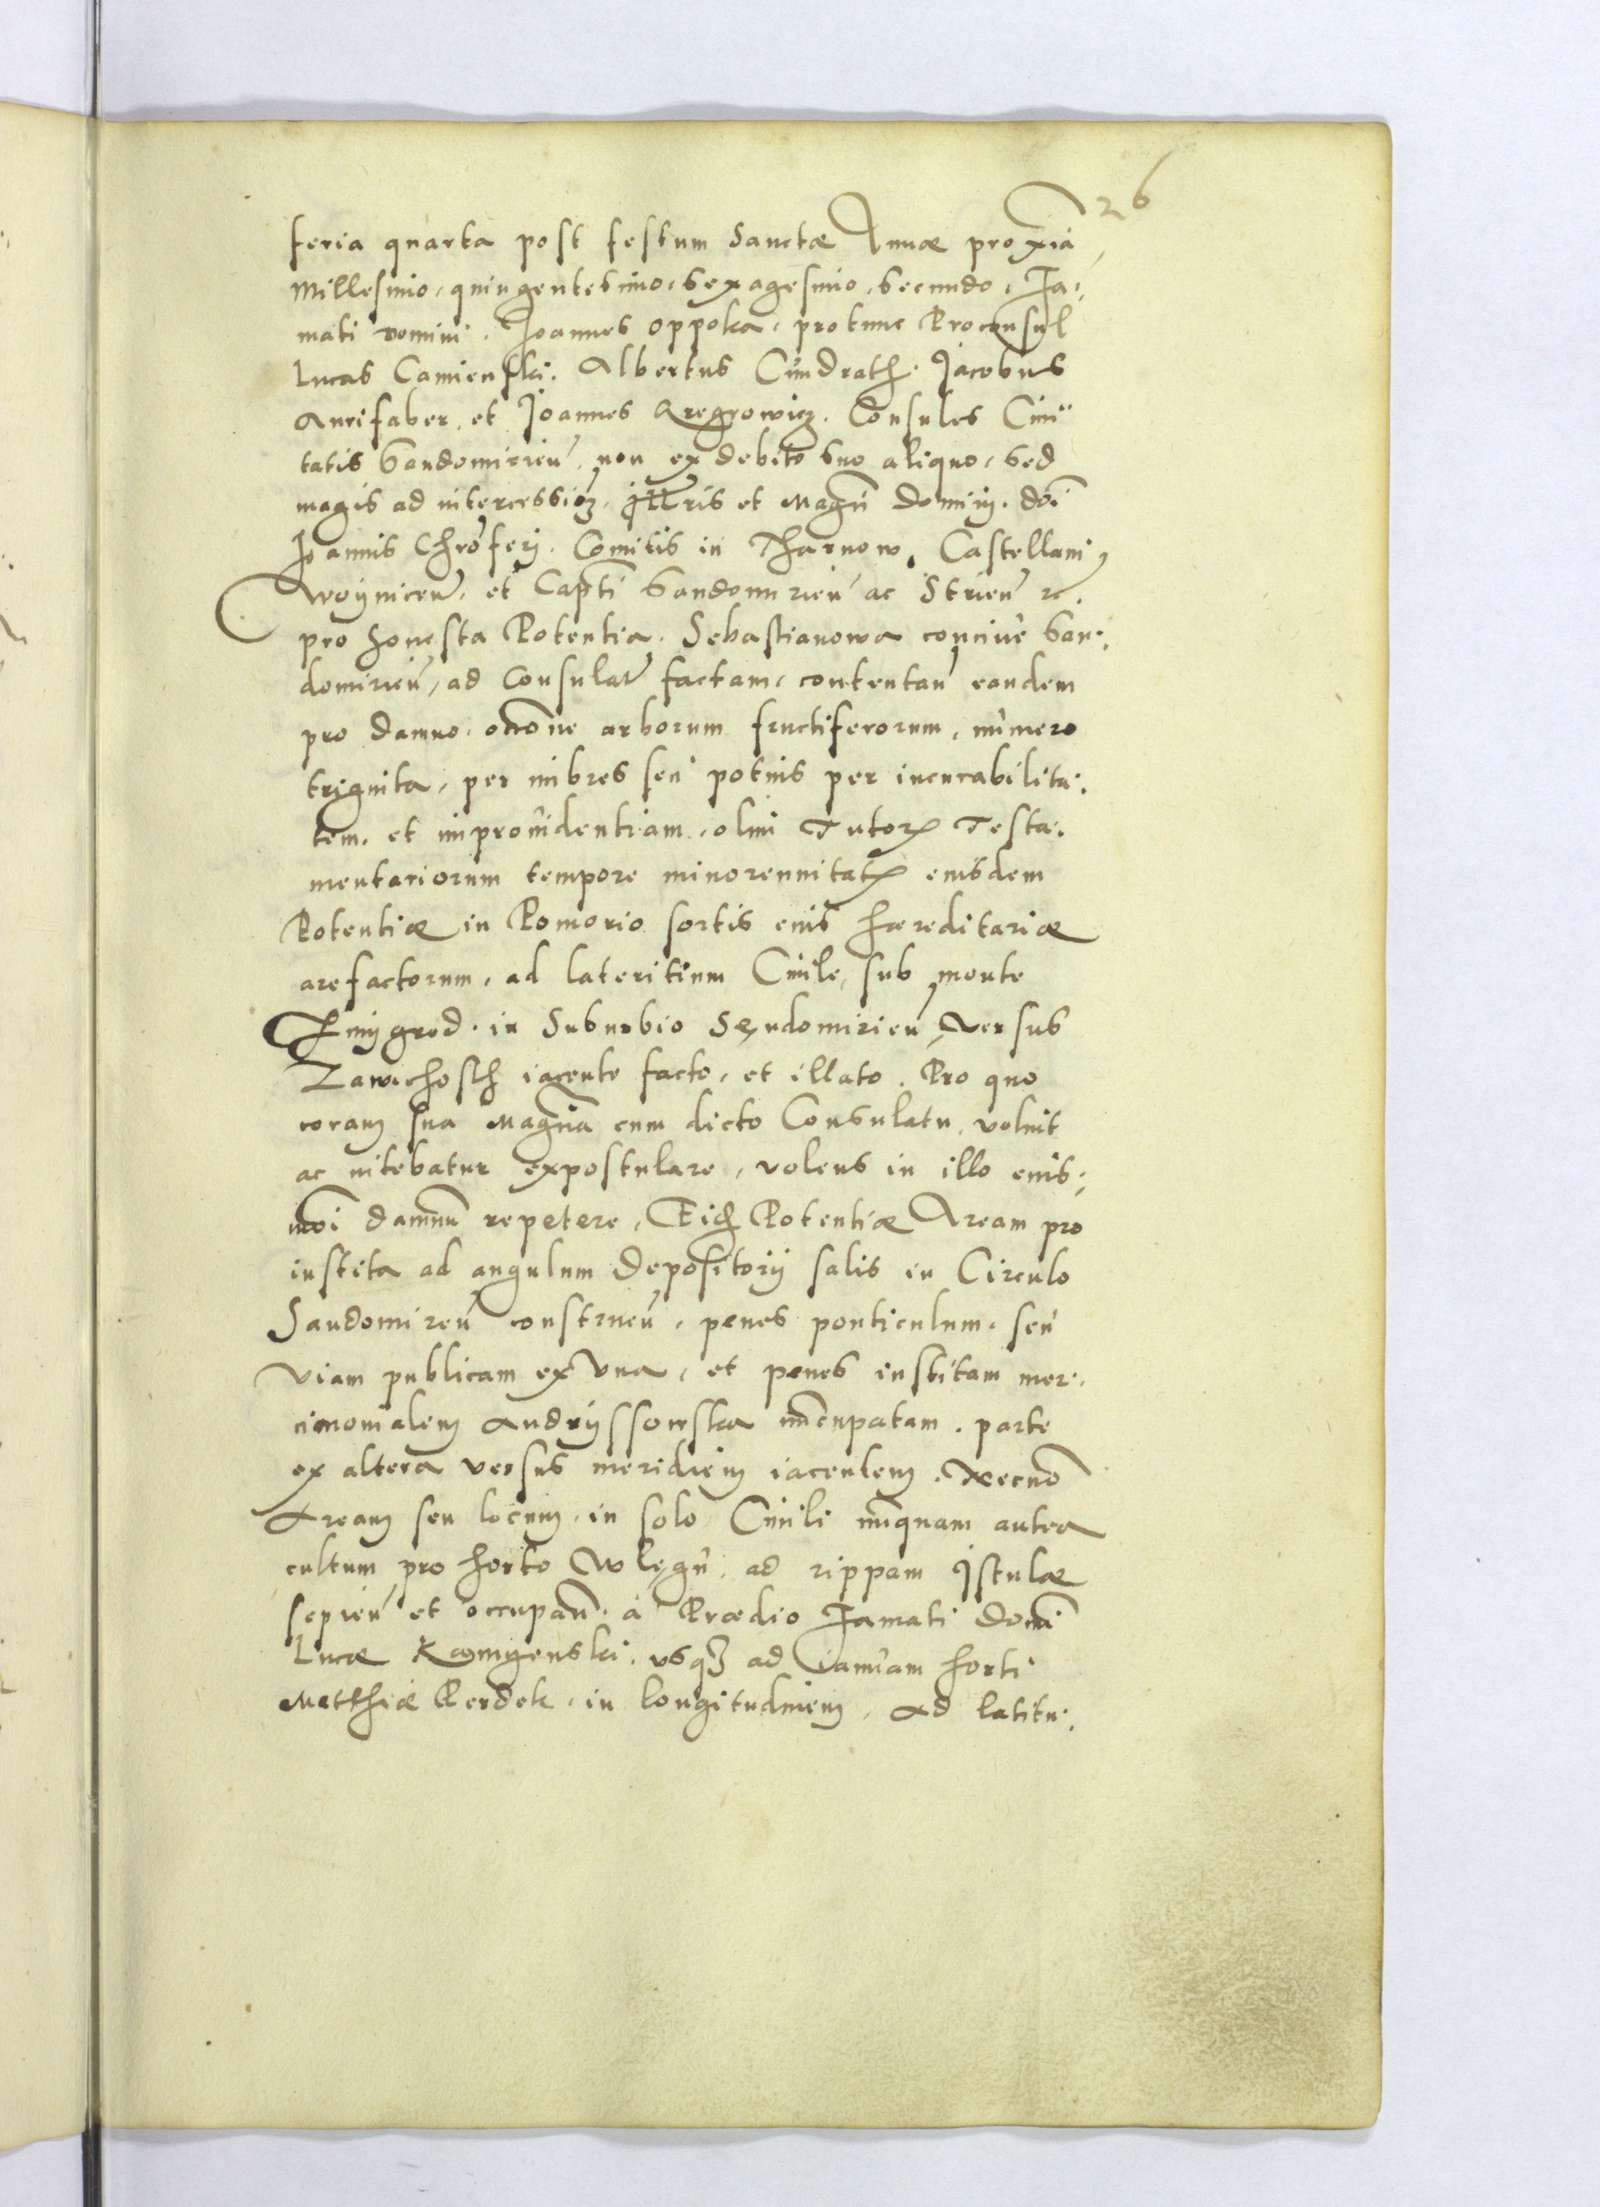 26
feria quarta post festum Sanctæ Annæ proxiã
Millesimo, quingentesimo, sexagesimo, secundo, Fa-
mati domini. Joannes oppoka, protunc Proconsul
Lucas Camienski. Albertus Cundrath. Jacobus
Aurifaber, et Joannes Gregrowicz. Consules Ciui-
tatis Sandomirieñ, non ex debito suo aliquo, sed
magis ad intercessioẽ, Jllris et Magñ Dominj. doĩ
Joannis Christoferj. Comitis in Tharnow, Castellani
Woÿniceñ, et Capti Sandomirieñ ac Strieñ ꝛc.
pro honesta Potentia. Sebastianowa conciue San-
domirieñ, ad Consulatũ factam, contentañ eandem
pro damno, arborum fructiferorum, numero
triginta, per imbres seu potius per incurabilita-
tem, et improuidentiam, olim Tutorꝝ Testa-
mentariorum tempore minorennitatꝭ eiusdem
Potentiæ in Pomorio sortis eius hæreditariæ
arefactorum, ad lateritium Ciuile, sub monte
Zmÿgrod. in Suburbio Sẹndomirieñ, versus
Zawichosth iacente facto, et illato. Pro quo
coram sua Magñia cum dicto Consulatu, voluit
ac nitebatur expostulare, volens in illo eius-
moĩ damnũ repetere, Eidẽ Potentiæ Aream pro
instita ad angulum Depositorij salis in Circulo
Sandomireñ construeñ, penes ponticulum, seu
viam publicam ex vna, et penes institam mer-
cimonialem Andrÿssowska nũcupatam. parte
ex altera versus meridiem iacentem. Necnõ
Aream seu locum, in solo Ciuili nũquam antea
cultum pro horto W lẹgũ, ad rippam Jstulæ
sepieñ et occupañ. à Prædio Famati Domĩ
Lucæ Kamyenski, vsqꝫ ad ianuam horti
Matthiæ Perdek, in longitudinem, Ad latitu-